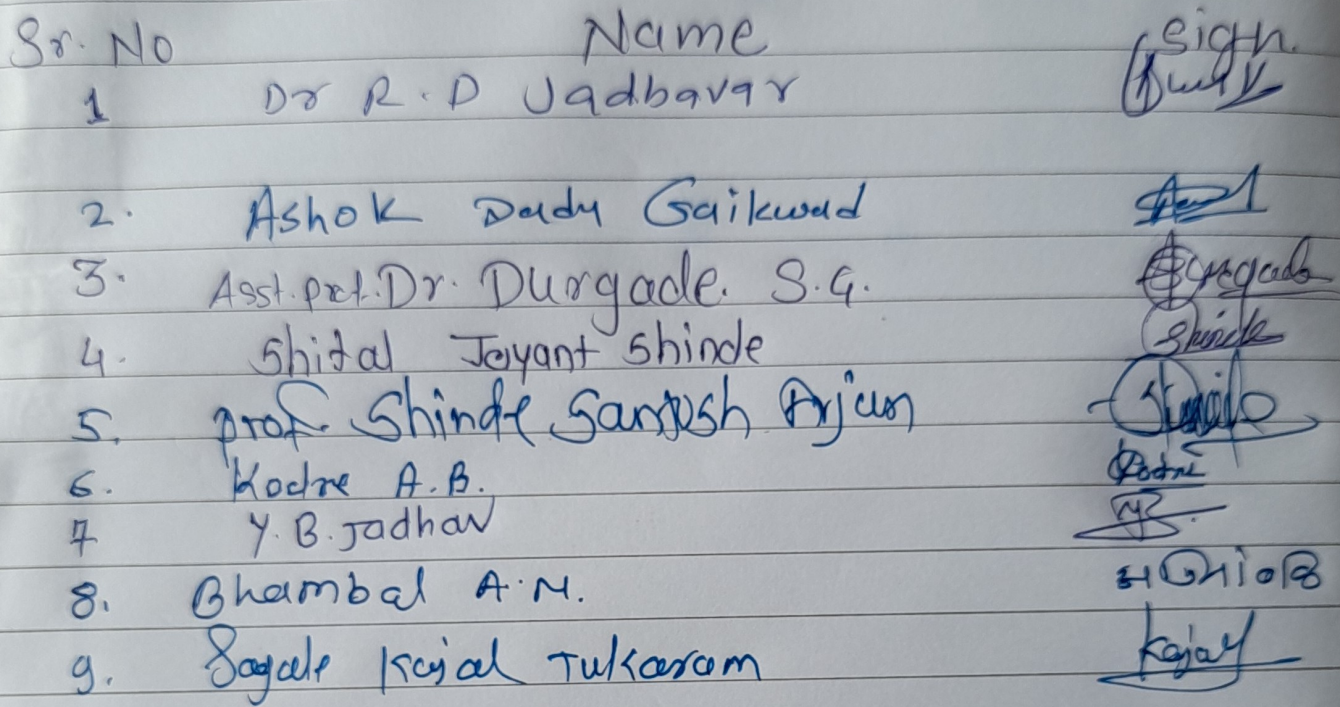 Sr. No Name Sign.
1 Dr R. D Jadbavar
2. Ashok Dadu Gaikwad
3. Asst. prof. Dr. Durgade. S. G. Durgade
4. Shital Jayant Shinde Shinde
5. prof. Shinde Santosh Arjun
6. Kodre A. B. Kodre
7 Y. B. Jadhav
8. Bhambal A. N.
9. Sagale Kajal Tukaram Kajal